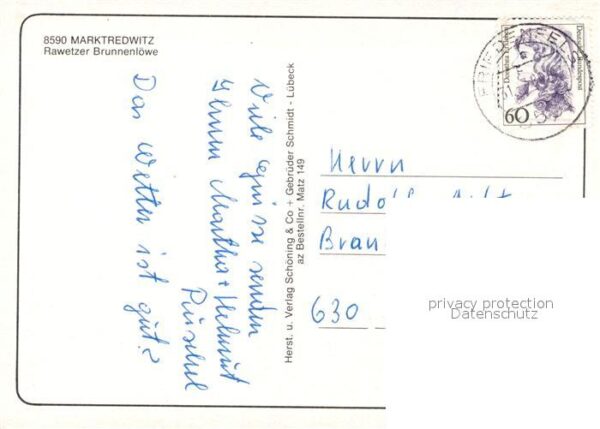 8590 MARKTREDWITZ
Rawetzer Brunnenlöwe
Viele Grüsse senden
Ihnen Martha + Helmut
Das Wetter ist gut?
Herst. u. Verlag Schöning & Co + Gebrüder Schmidt - Lübeck
az Bestellnr. Matz 149
Deutsche Bundespost
60
Herrn
Rudolf
Brau
630
privacy protection
Datenschutz